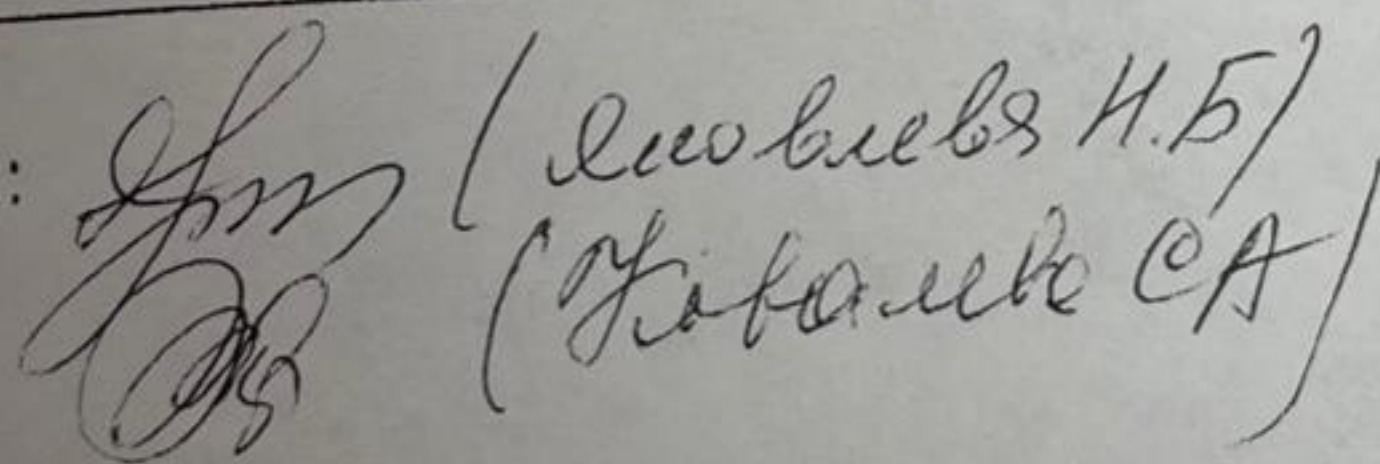 : (Яковлева Н.Б)
(Ковалева С А)